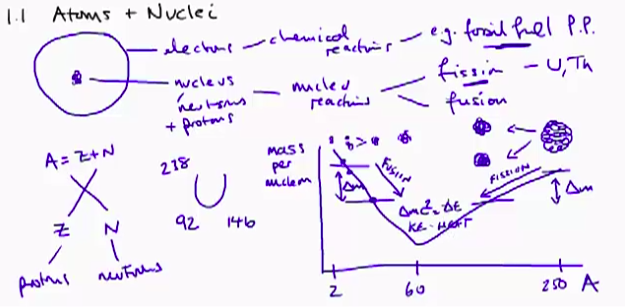 1.1 Atoms + Nuclei
electrons — chemical reactions — e.g. fossil fuel P.P.
nucleus
neutrons + protons — nuclear reactions
fission — U, Th
fusion
A = Z + N
Z N
protons neutrons
238
U
92 146
mass per nucleon
FUSION
Δm
Δmc² = ΔE
KE - HEAT
FISSION
Δm
2 60 250 A